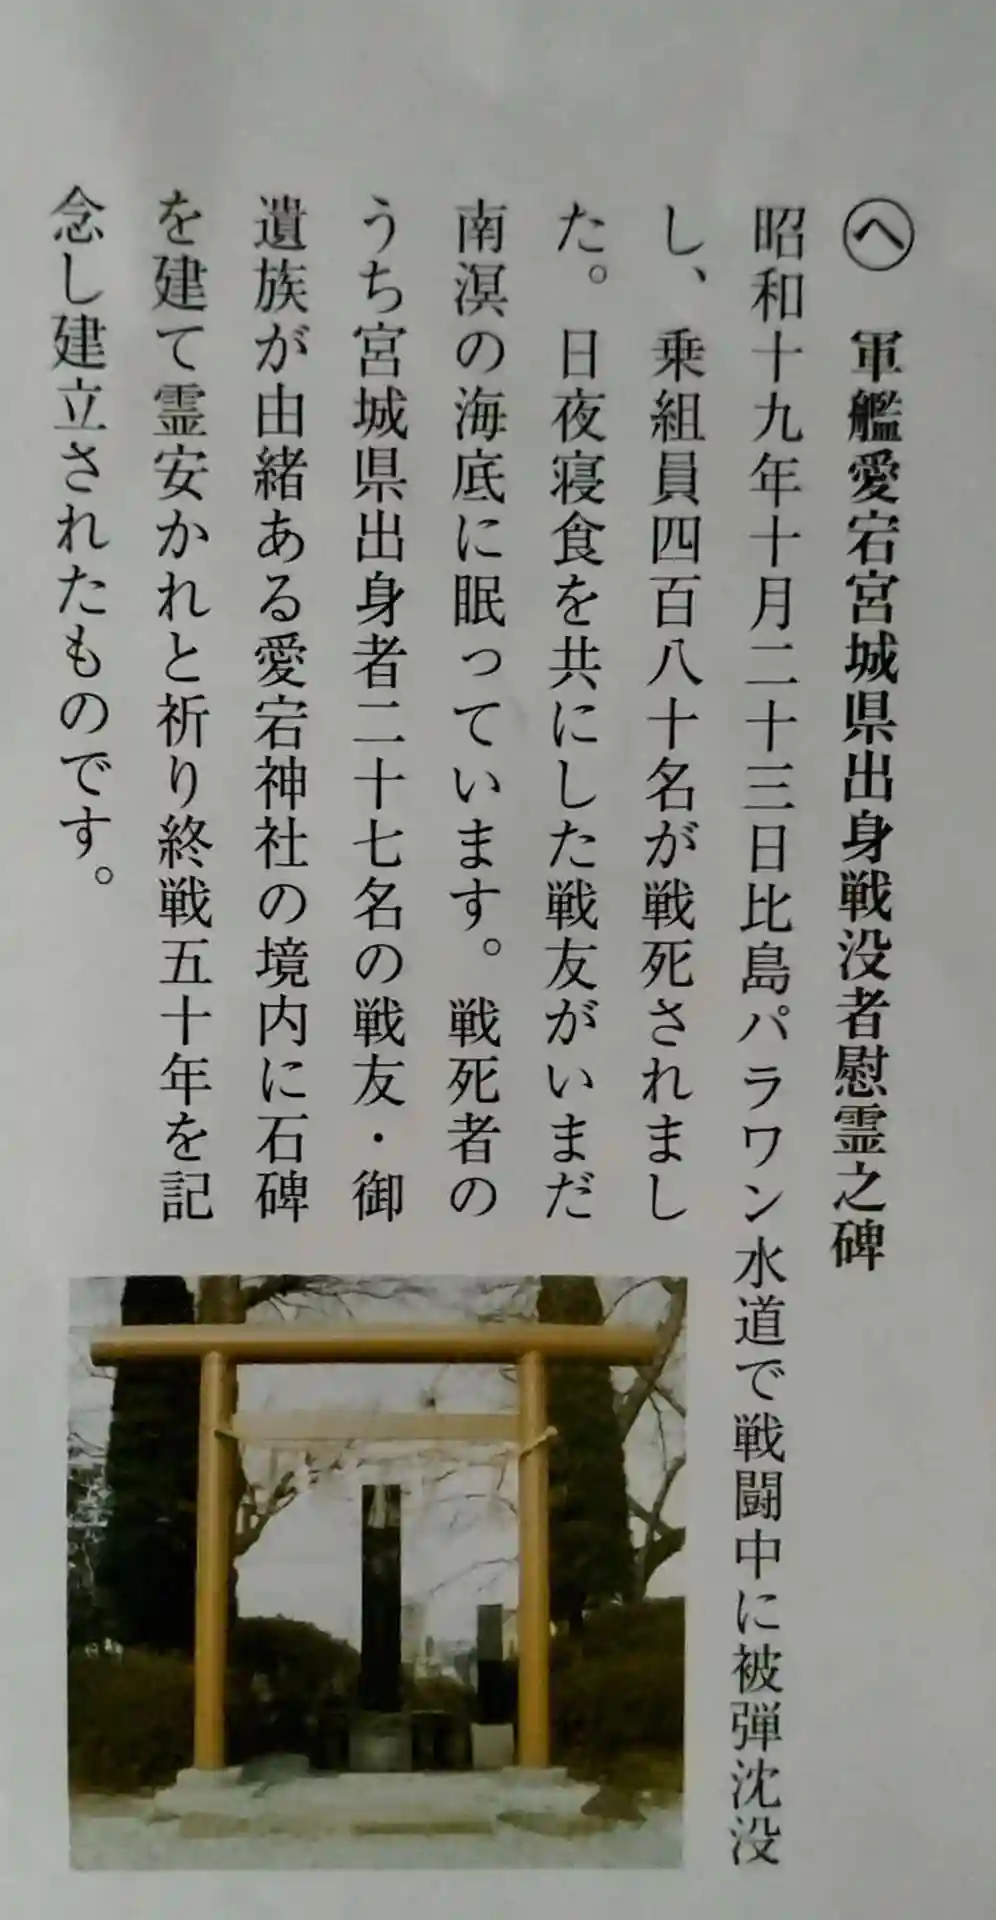 ㋬ 軍艦愛宕宮城県出身戦没者慰霊之碑
昭和十九年十月二十三日比島パラワン水道で戦闘中に被弾沈没
し、乗組員四百八十名が戦死されまし
た。日夜寝食を共にした戦友がいまだ
南溟の海底に眠っています。戦死者の
うち宮城県出身者二十七名の戦友・御
遺族が由緒ある愛宕神社の境内に石碑
を建て霊安かれと祈り終戦五十年を記
念し建立されたものです。